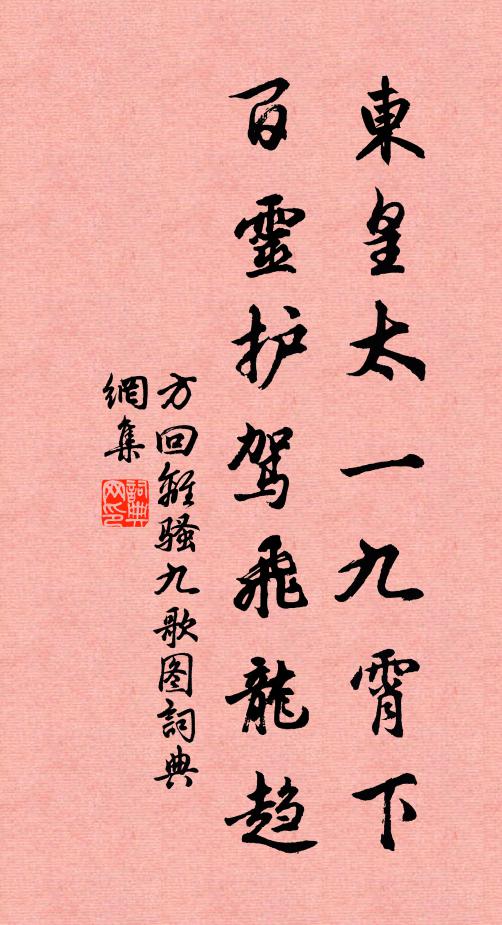 東皇太一九霄下
百靈护駕飛龍趋
方回離騷九歌图詞典
網集
詞典
网印